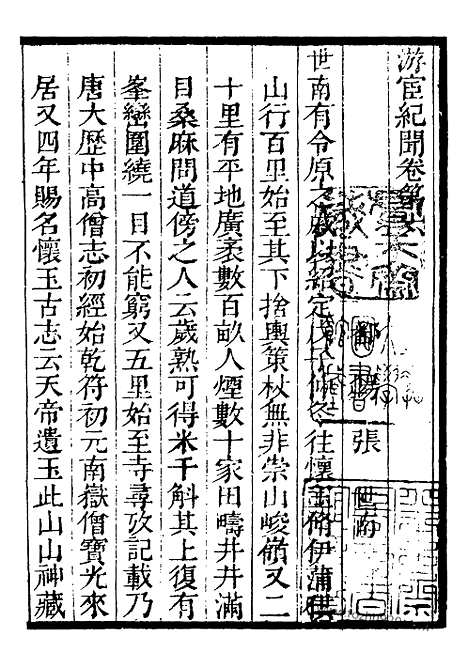 游宦紀聞卷第六
鄱陽張世南
世南有令原之戚以紹定戊子仲冬往懷玉脩伊蒲供
山行百里始至其下捨輿策杖無非崇山峻嶺又二
十里有平地廣袤數百畝人煙數十家田疇井井滿
目桑麻問道傍之人云歲熟可得米千斛其上復有
峯巒圍繞一目不能窮又五里始至寺尋攷記載乃
唐大歷中高僧志初經始乾符初元南嶽僧寶光來
居又四年賜名懷玉古志云天帝遺玉此山山神藏